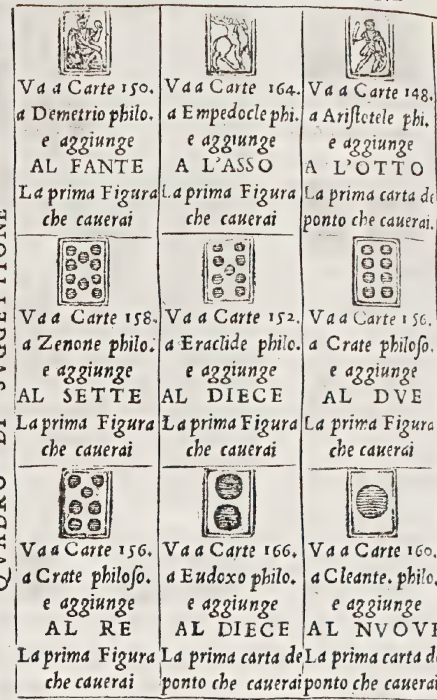 QVADRO DI SVGGETTIONE
Va a Carte 150.
a Demetrio philo.
e aggiunge
AL FANTE
La prima Figura
che cauerai
Va a Carte 164.
a Empedocle phi.
e aggiunge
A L'ASSO
La prima Figura
che cauerai
Va a Carte 148.
a Aristotele phi.
e aggiunge
A L'OTTO
La prima carta de
ponto che cauerai.
Va a Carte 158.
a Zenone philo.
e aggiunge
AL SETTE
La prima Figura
che cauerai
Va a Carte 152.
a Eraclide philo.
e aggiunge
AL DIECE
La prima Figura
che cauerai
Va a Carte 156.
a Crate philoso.
e aggiunge
AL DVE
La prima Figura
che cauerai
Va a Carte 156.
a Crate philoso.
e aggiunge
AL RE
La prima Figura
che cauerai
Va a Carte 166.
a Eudoxo philo.
e aggiunge
AL DIECE
La prima carta de
ponto che cauerai
Va a Carte 160.
a Cleante. philo.
e aggiunge
AL NVOVE
La prima carta d
ponto che cauerai